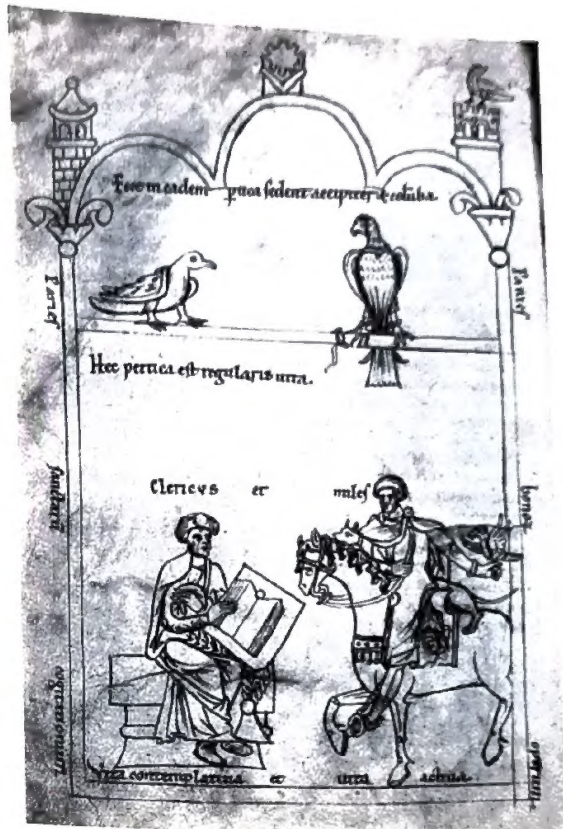 Ecce in eadem ptica sedent accipiter & columba.
Paries
Paries
Hec pertica est regularis uita.
Clericus et miles
sanctarum
bonorum
cogitationum
operum
Vita contemplatiua et uita actiua.